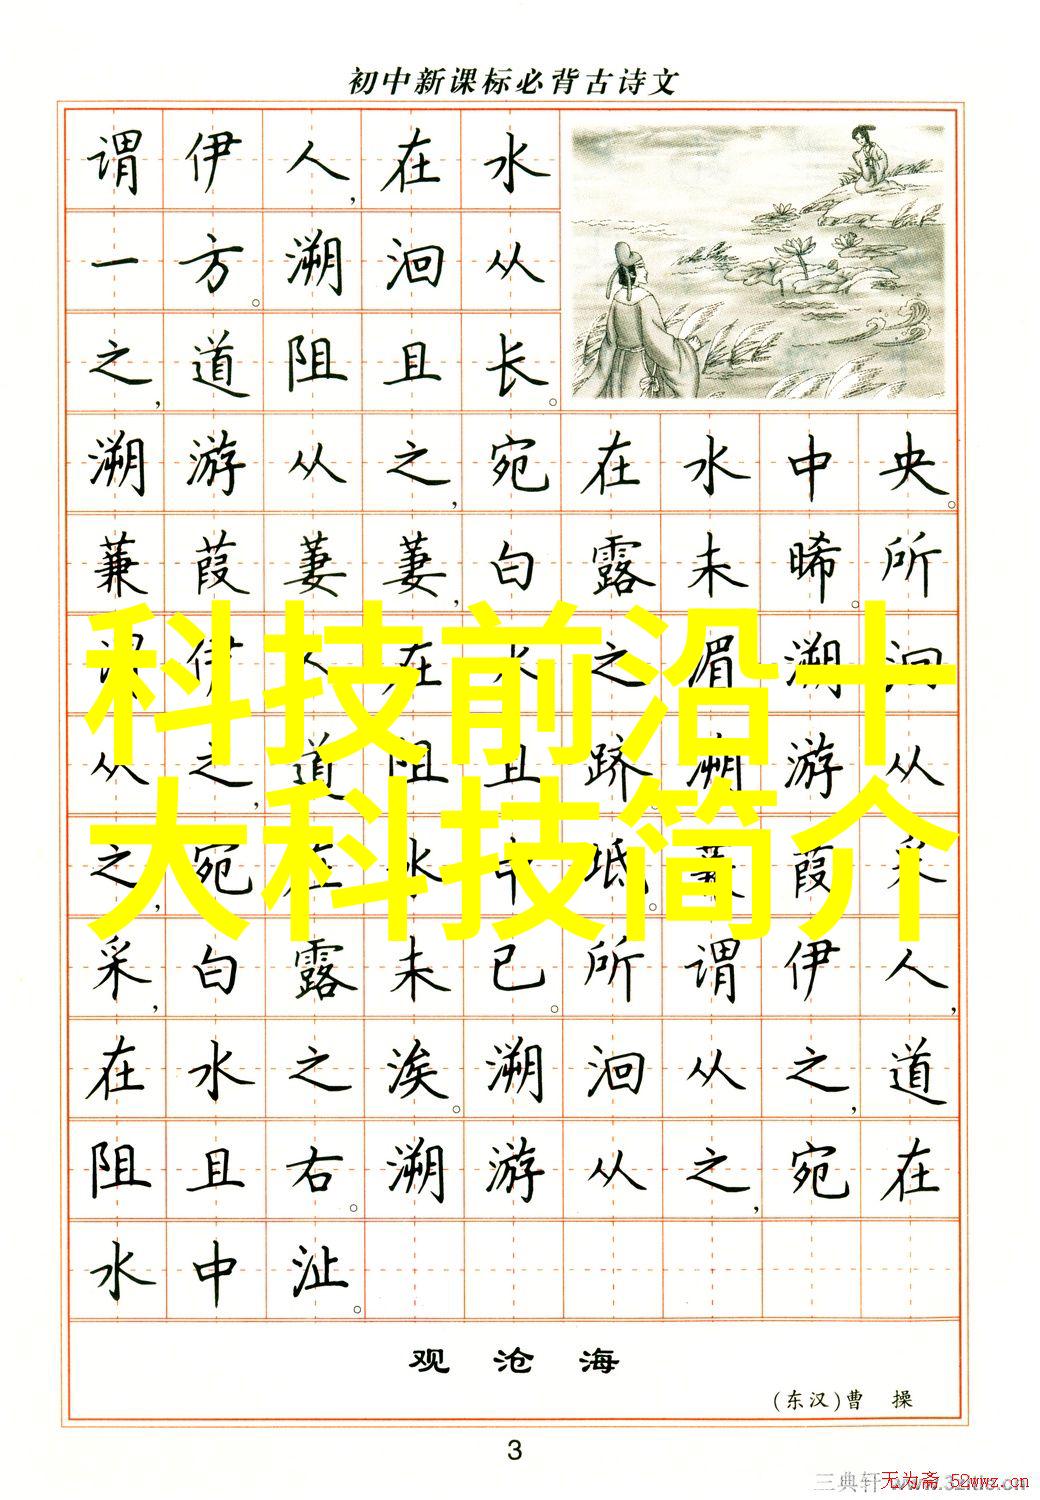 初中新课标必背古诗文
谓伊人,在水
一方。溯洄从
之,道阻且长。
溯游从之,宛在水中央。
蒹葭萋萋,白露未晞。所
谓伊人在水之湄溯洄
科技前沿十
从之,道阻且跻。溯游从
大科技简介
之,宛在水中坻。蒹葭采
采,白露未已。所谓伊人,
在水之涘。溯洄从之,道
阻且右。溯游从之,宛在
水中沚。
观沧海
(东汉)曹 操
3
三典轩
无为斋 52wwz.cn